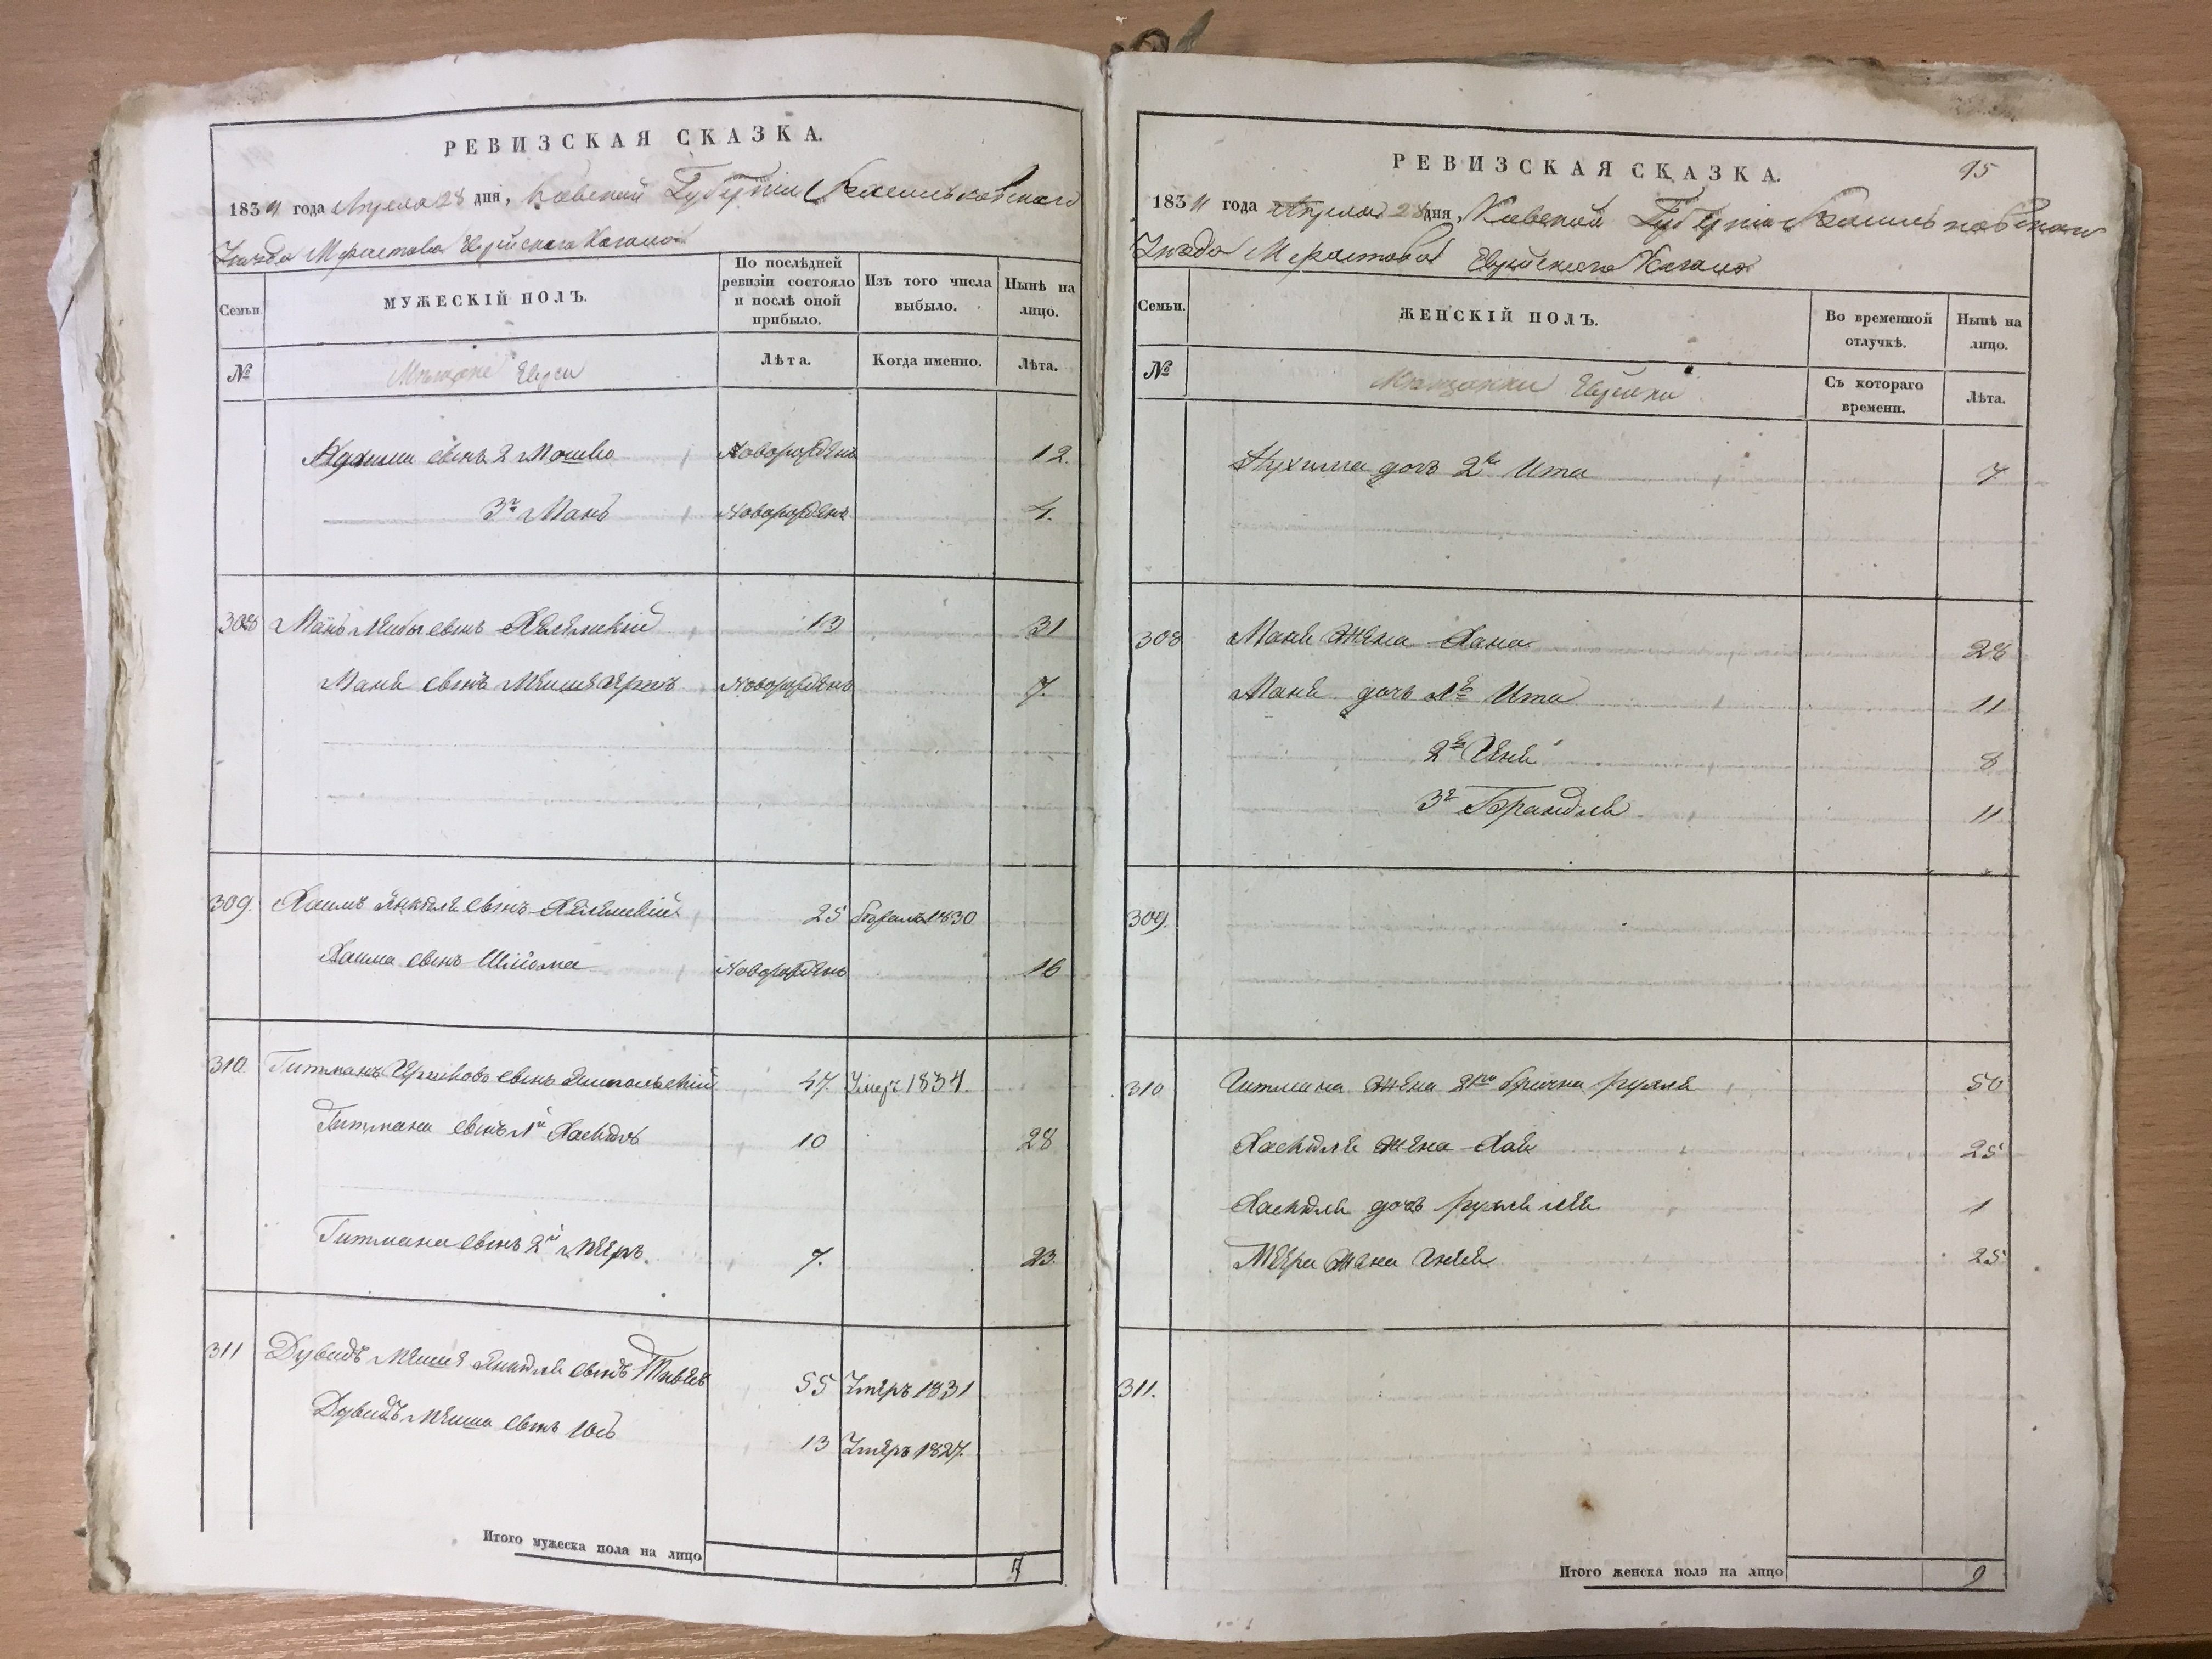 РЕВИЗСКАЯ СКАЗКА.
1834 года Апреля 28 дня, Киевской Губернии Васильковского
Уезда Мотовиловка Еврейского Кагала
Семьи.
МУЖЕСКІЙ ПОЛЪ.
По послѣдней ревизіи состояло и послѣ оной прибыло.
Изъ того числа выбыло.
Нынѣ на лицо.
№
Мещане Евреи
Лѣта.
Когда именно.
Лѣта.
сынъ 2 Мошко Новорожденъ 12.
3й Манъ Новорожденъ 4.
308 Манъ Лейбы сынъ 13 31
Маня сынъ Новорожденъ 7.
309. Хаимъ Янкеля сынъ 25 1830
Хаима сынъ Шлиома Новорожденъ 16
310 Гитманъ сынъ 47. Умеръ 1834.
Гитмана сынъ 1й Хаскель 10 28
Гитмана сынъ 2й Мееръ. 7. 23.
311 Дувидъ Янкеля сынъ 55 Умеръ 1831
Дувидъ сынъ Юсь 13 Умеръ 1827.
Итого мужеска пола на лицо 7
РЕВИЗСКАЯ СКАЗКА.
95
1834 года Апреля 28 дня, Киевской Губернии Васильковского
Уезда Еврейского Кагала
Семьи.
ЖЕНСКІЙ ПОЛЪ.
Во временной отлучкѣ.
Нынѣ на лицо.
№
Мещанки Еврейки
Съ котораго времени.
Лѣта.
Нухима дочь 2я Ита 7
308 Маня Жена Хана 28
Маня дочь 1я Ита 11
2я Геня 8
3я Брандля 11
309.
310 Гитмана жена 2го брачна Рухля 50
Хаскеля жена Хая 25
Хаскеля дочь 1
Меера жена 25
311.
Итого женска пола на лицо 9